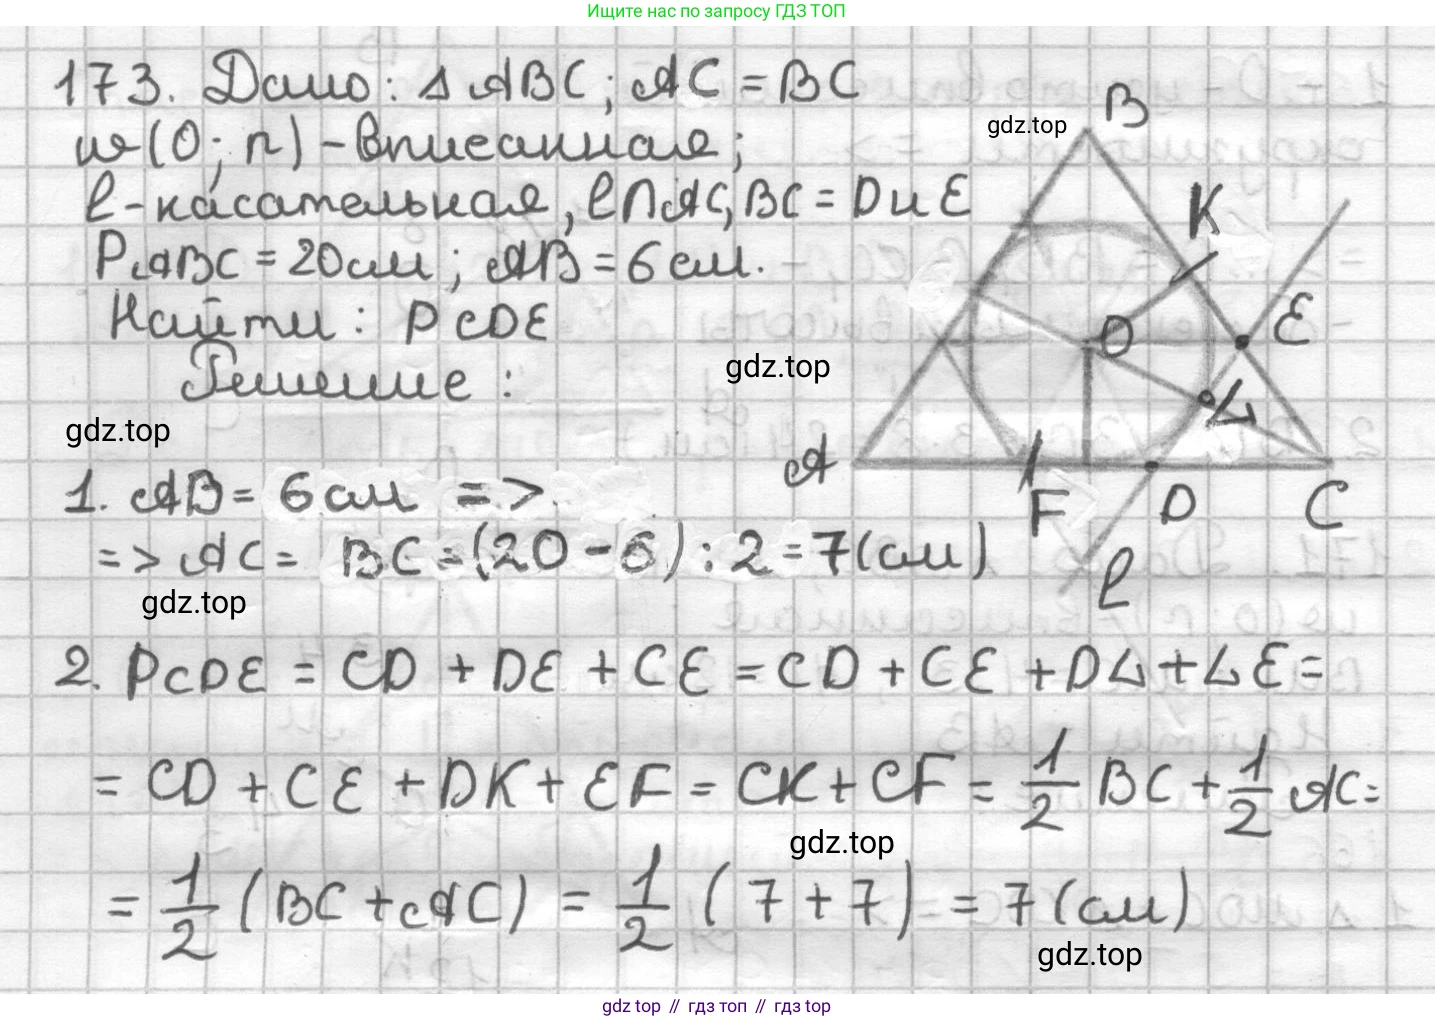 Ищите нас по запросу ГДЗ ТОП
173. Дано: △ ABC; AC = BC
gdz.top
w(O; r) - вписанная;
l - касательная, l ∩ AC, BC = D и E
P ABC = 20 см; AB = 6 см.
Найти: P CDE
Решение:
gdz.top
gdz.top
B
K
E
O
L
A
F
D
C
l
1. AB = 6 см =>
=> AC = BC = (20 - 6) : 2 = 7 (см)
gdz.top
2. P CDE = CD + DE + CE = CD + CE + DL + LE =
= CD + CE + DK + EF = CK + CF = 1/2 BC + 1/2 AC =
gdz.top
= 1/2 (BC + AC) = 1/2 (7 + 7) = 7 (см)
gdz.top
gdz top // гдз топ // gdz top